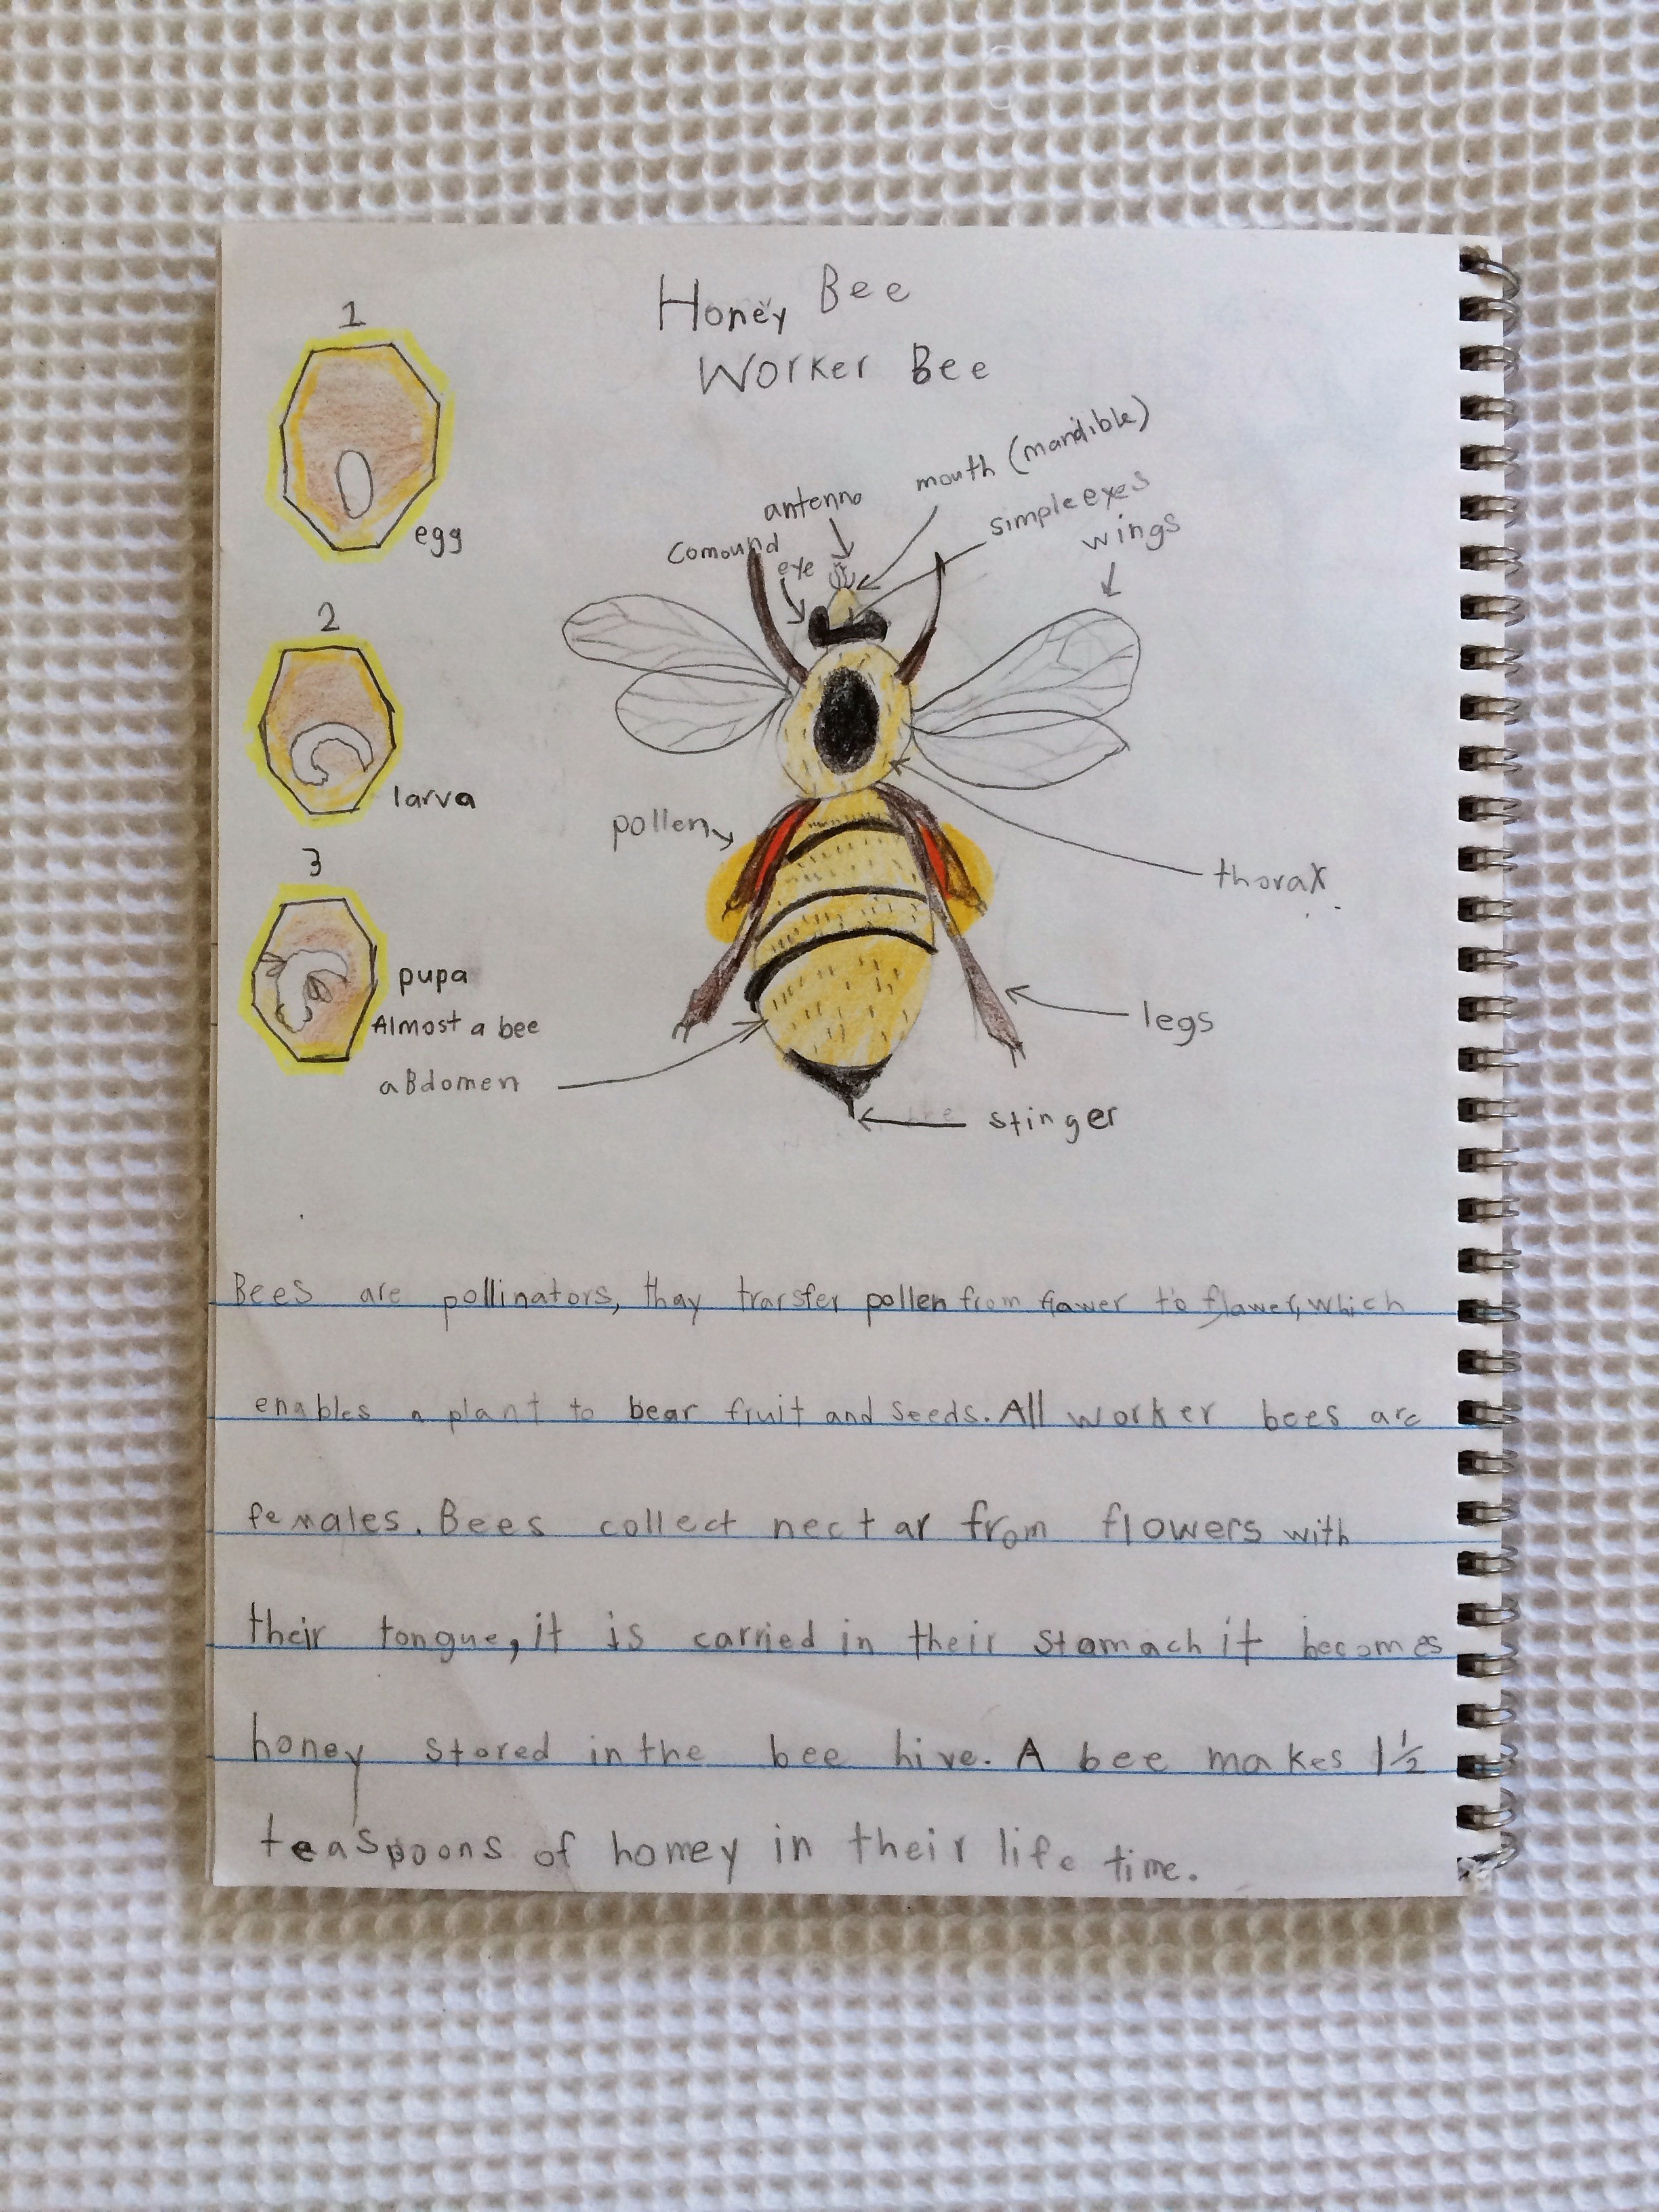 Honey Bee
Worker Bee
1
egg
2
larva
3
pupa
Almost a bee
mouth (mandible)
antenna
simple eyes
Comound
eye
wings
pollen
thorax
legs
aBdomen
stinger
Bees are pollinators, thay transfer pollen from flawer to flawer, which
enables a plant to bear fruit and seeds. All worker bees are
females. Bees collect nectar from flowers with
their tongue, it is carried in their stamach it becomes
honey stored in the bee hive. A bee makes 1 1/2
teaspoons of honey in their life time.